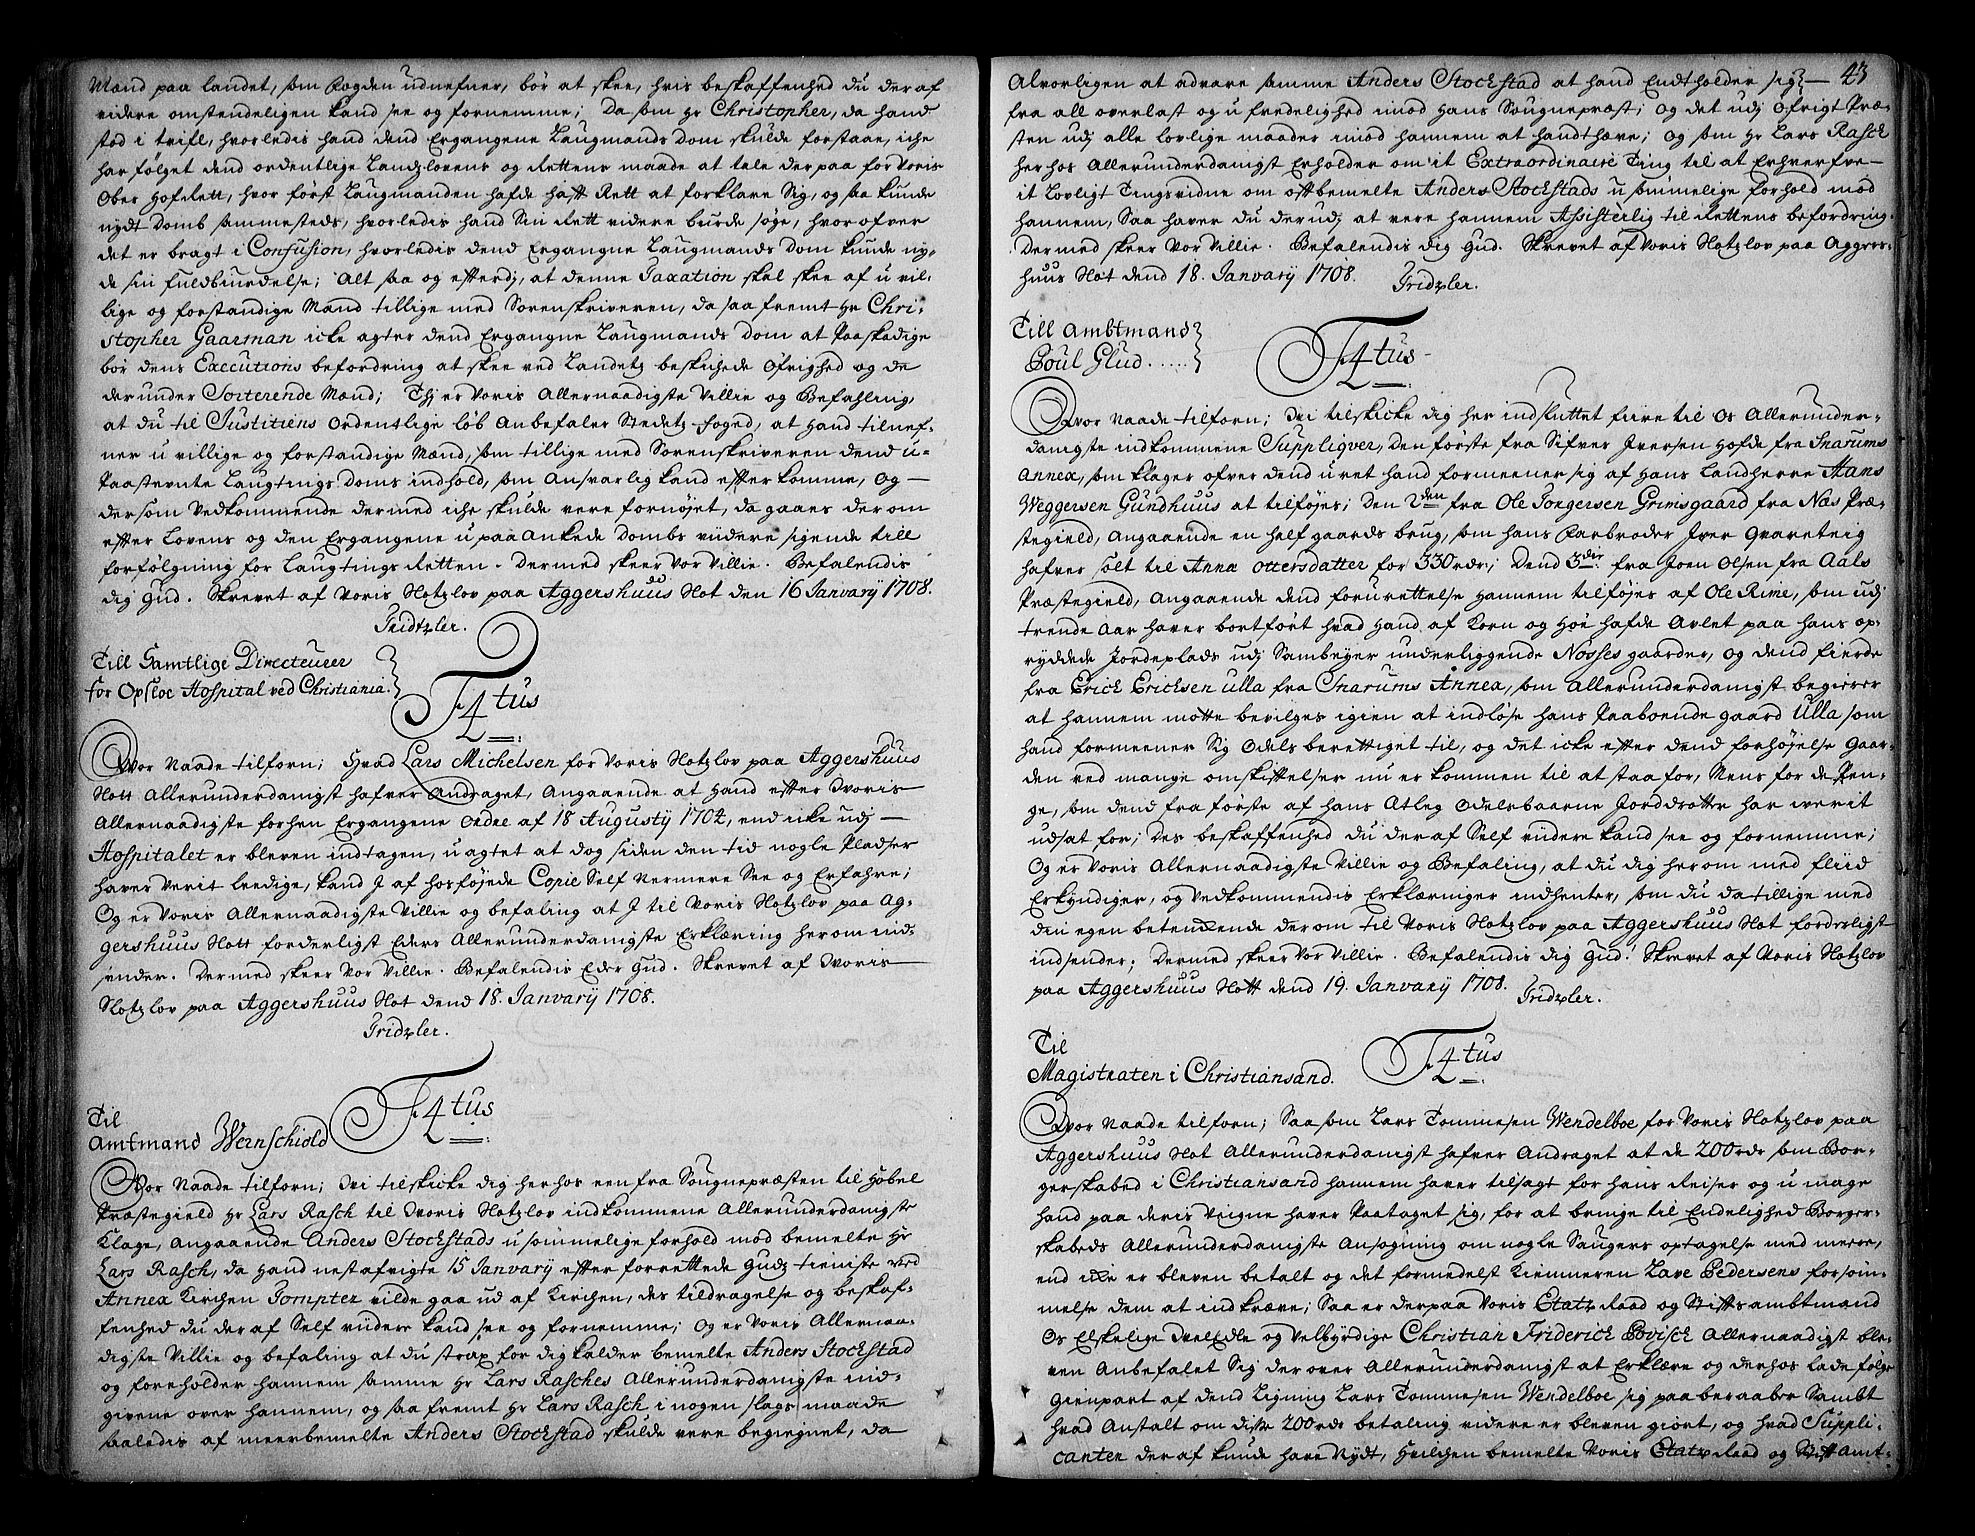 Mænd paa landet, som Fogden udnefner, bør at skee, hvis beskaffenhed du der af
videre omstendeligen kand see og fornemme; Da som Hr Christopher, da hand
stod i trifl, hvorledis hand dend Ergangene Laugmands Dom skulde forstaae, iche
har følget dend ordentlige Landzlovens og Rettens maade at tale der paa for Voris
Ober Hofrett, hvor først Laugmanden hafde hatt Rett at forklare Sig, og saa kunde
nydt Domb sammesteds, hvorledis hand Sin Rett videre burde søge, hvor ofver
det er bragt i Confusion, hvorledis dend Ergangne Laugmands Dom kunde ny-
de sin fuldbyrdelse; Alt saa og efterdj, at denne Taxation skal skee af u vil-
lige og forstandige Mænd tillige med Sorenskriveren, da saa fremt Hr Chri-
stopher Gaarman icke agter dend Ergangne Laugmands Dom at Paaskadige
bør dens Executions befordring at skee ved Landetz beskichede Øfrighed og de
derunder Sorterende Mænd; Thj er Voris Allernaadigste Villie og Befahling,
at du til Justitiens Ordentlige løb Anbefaler Stedetz foged, at Hand tilnef-
ner u villige og forstandige Mænd, som tillige med Sorenskriveren dend u-
Paastevnte Laugtings Doms indhold, som Ansvarlig kand efter komme, og
dersom Vedkommende dermed iche skulde vere fornøjet, da gaaes der om
efter Loven og den Ergangene u paa Ankede Dombs viidere sigende till
forfølgning for Laugtings Retten. Dermed skeer Vor Villie. Befalendis
dig Gud. Skrevet af Voris Slotzlov paa Aggershuus Slot den 16 January 1708.
Tridtzler.
Till Samtlige Directeurer
for Opsloe Hospital ved Christiania.
F4tus
Vor Naade tilforn; Hvad Lars Michelsen for Voris Slotzlov paa Aggershuus
Slott Allerunderdanigst hafver Andraget, Angaaende at Hand efter Voris
Allernaadigste forhen Ergangene Ordre af 18 Augusty 1704, end icke udj
Hospitalet er bleven indtagen, u agtet at dog siden den tid nogle Pladser
haver Verit ledige, kand I af hosføjede Copie Self Nermere See og Erfahre;
Og er Voris Allernaadigste Villie og befaling at I til Voris Slotzlov paa Ag-
gershuus Slott forderligst Eders Allerunderdanigste Erklæring her om ind-
sender. Dermed skeer Vor Villie. Befalendis Eder Gud. Skrevet af Voris
Slotzlov paa Aggershuus Slot dend 18. January 1708.
Tridzler.
Til
Amtmand Wernschiold
F4tus
Vor Naade tilforn; Vi tilskicke dig her hos een fra Sougnepræsten til Høbel
Præstegield Hr Lars Rasch til Voris Slotzlov indkommene Allerunderdanigste
Klage, angaaende Anders Stockstads u sommelige forhold mod bemelte Hr
Lars Rasch, da Hand nestafvigte 15 January efter forrettede Gudz tieniste ved
Annex Kirchen Tompter vilde gaa ud af Kirchen, des tildragelse og beskaf-
fenhed du der af Self viidere kand see og fornemme; Og er Voris Allernaa-
digste Villie og befaling at du strax for dig kalder bemelte Anders Stockstad
og foreholder hannem samme Hr Lars Rasches Allerunderdanigste ind-
givene over hannem, og saa fremt Hr Lars Rasch i nogen slags maade
saaledis af meerbemelte Anders Stockstad skulde vere begiegnet, da
43
Alvorligen at advare samme Anders Stockstad at hand Endtholder sig
fra all overlast og u fredelighed imod Hans Sougnepræst; og det udj Øfrigt Præ-
sten udj alle lovlige maader imod hannem at handthæve; og som Hr Lars Rasch
her hos Allerunderdanigst Erholder om it Extraordinaire Ting til at Erhverfve
it Lovligt Tingsvidne om oftbemelte Anders Stockstads u sømmelige forhold mod
hannem, Saa haver du derudj at vere hannem Assisterlig til Rettens befordring.
Dermed skeer Vor Villie. Befalendis dig Gud. Skrevet af Voris Slotzlov paa Aggers-
huus Slot dend 18. January 1708.
Tridzler.
Till Ambtmand
Poul Glud.....
F4tus
Vor Naade tilforn; Vi tilskicke dig her indsluttet fiire til Os Allerunder-
danigste indkommene Suppliqver, den første fra Sifver Iversen Hofde fra Snarums
Annex, som klager ofver dend u ret hand formeener sig af Hans Landherre Hans
Weggersen Gundhuus at tilføjes; den 2den fra Ole Torgersen Grimsgaard fra Næs Præ-
stegield, Angaaende en half gaards brug, som hans Farbroder Iver Qvareteig
hafver solt til Anna Ottersdatter for 330 rdr; Dend 3die fra Joen Olsen fra Aals
Præstegield, Angaaende dend forurettelse Hannem tilføjes af Ole Rime, som udj
trende Aar haver bortført hvad Hand af Korn og Høe hafde Avlet paa hans op-
ryddede Jordeplads udj Sambeyer underliggende Nosses gaarder, og dend fierde
fra Erich Erichsen Ulla fra Snarums Annex, som Allerunderdanigst begierer
at hannem motte bevilges igien at indløse hans Paaboende gaard Ulla som
hand formeener Sig Odels berettiget til, og det icke efter dend forhøjelse Gaar-
den ved mange omskiftelser nu er kommen til at staa for, Mens for de Pen-
ge, som dend fra første af hans Atleg Odelsbaarne Jorddrotter har werit
udsat for; Des beskaffenhed du der af Self viidere kand see og fornemme;
Og er Voris Allernaadigste Villie og Befaling, at du dig her om med fliid
Erkyndiger, og Vedkommendis Erklæringer indhenter, som du da tillige med
din egen betenckende der om til Voris Slotzlov paa Aggershuus Slot forderligst
indsender; Dermed skeer Vor Villie. Befalendis dig Gud. Skrevet af Voris Slotzlov
paa Aggershuus Slott dend 19. January 1708.
Tridzler.
Til
Magistraten i Christiansand.
F4tus
Vor Naade tilforn; Saa som Lars Tommesen Wendelboe, for Voris Slotzlov paa
Aggershuus Slot Allerunderdanigst hafver Andraget at de 200 rdr som Bor-
gerskabed i Christiansand hannem haver tilsagt for hans Reiser og u mage
hand paa deris Viigne haver Paataget sig, for at bringe til Endelighed Borger-
skabeds Allerunderdanigste Ansøgning om nogle Saugers optagelse med mere,
end icke er bleven betalt og det formedelst Kiemneren Lave Pedersens forsøm-
melse dem at indkræve; Saa er derpaa Voris Etatz Raad og Stiftsambtmand
Os Elskelige Vel Edle og Velbyrdige Christian Friderich Povisch Allernaadigst ble-
ven Anbefalet Sig der over Allerunderdanigst at Erklære og derhos lade følge
Gienpart af dend Ligning Lars Tommesen Wendelboe sig paaberaaber Sambt
hvad Anstalt om disse 200 rdr betaling videre er bleven giort, og hvad Suppli-
canten der af kunde have Nydt, Hvilchen bemelte Voris Etatz Raad og Stiftamt-